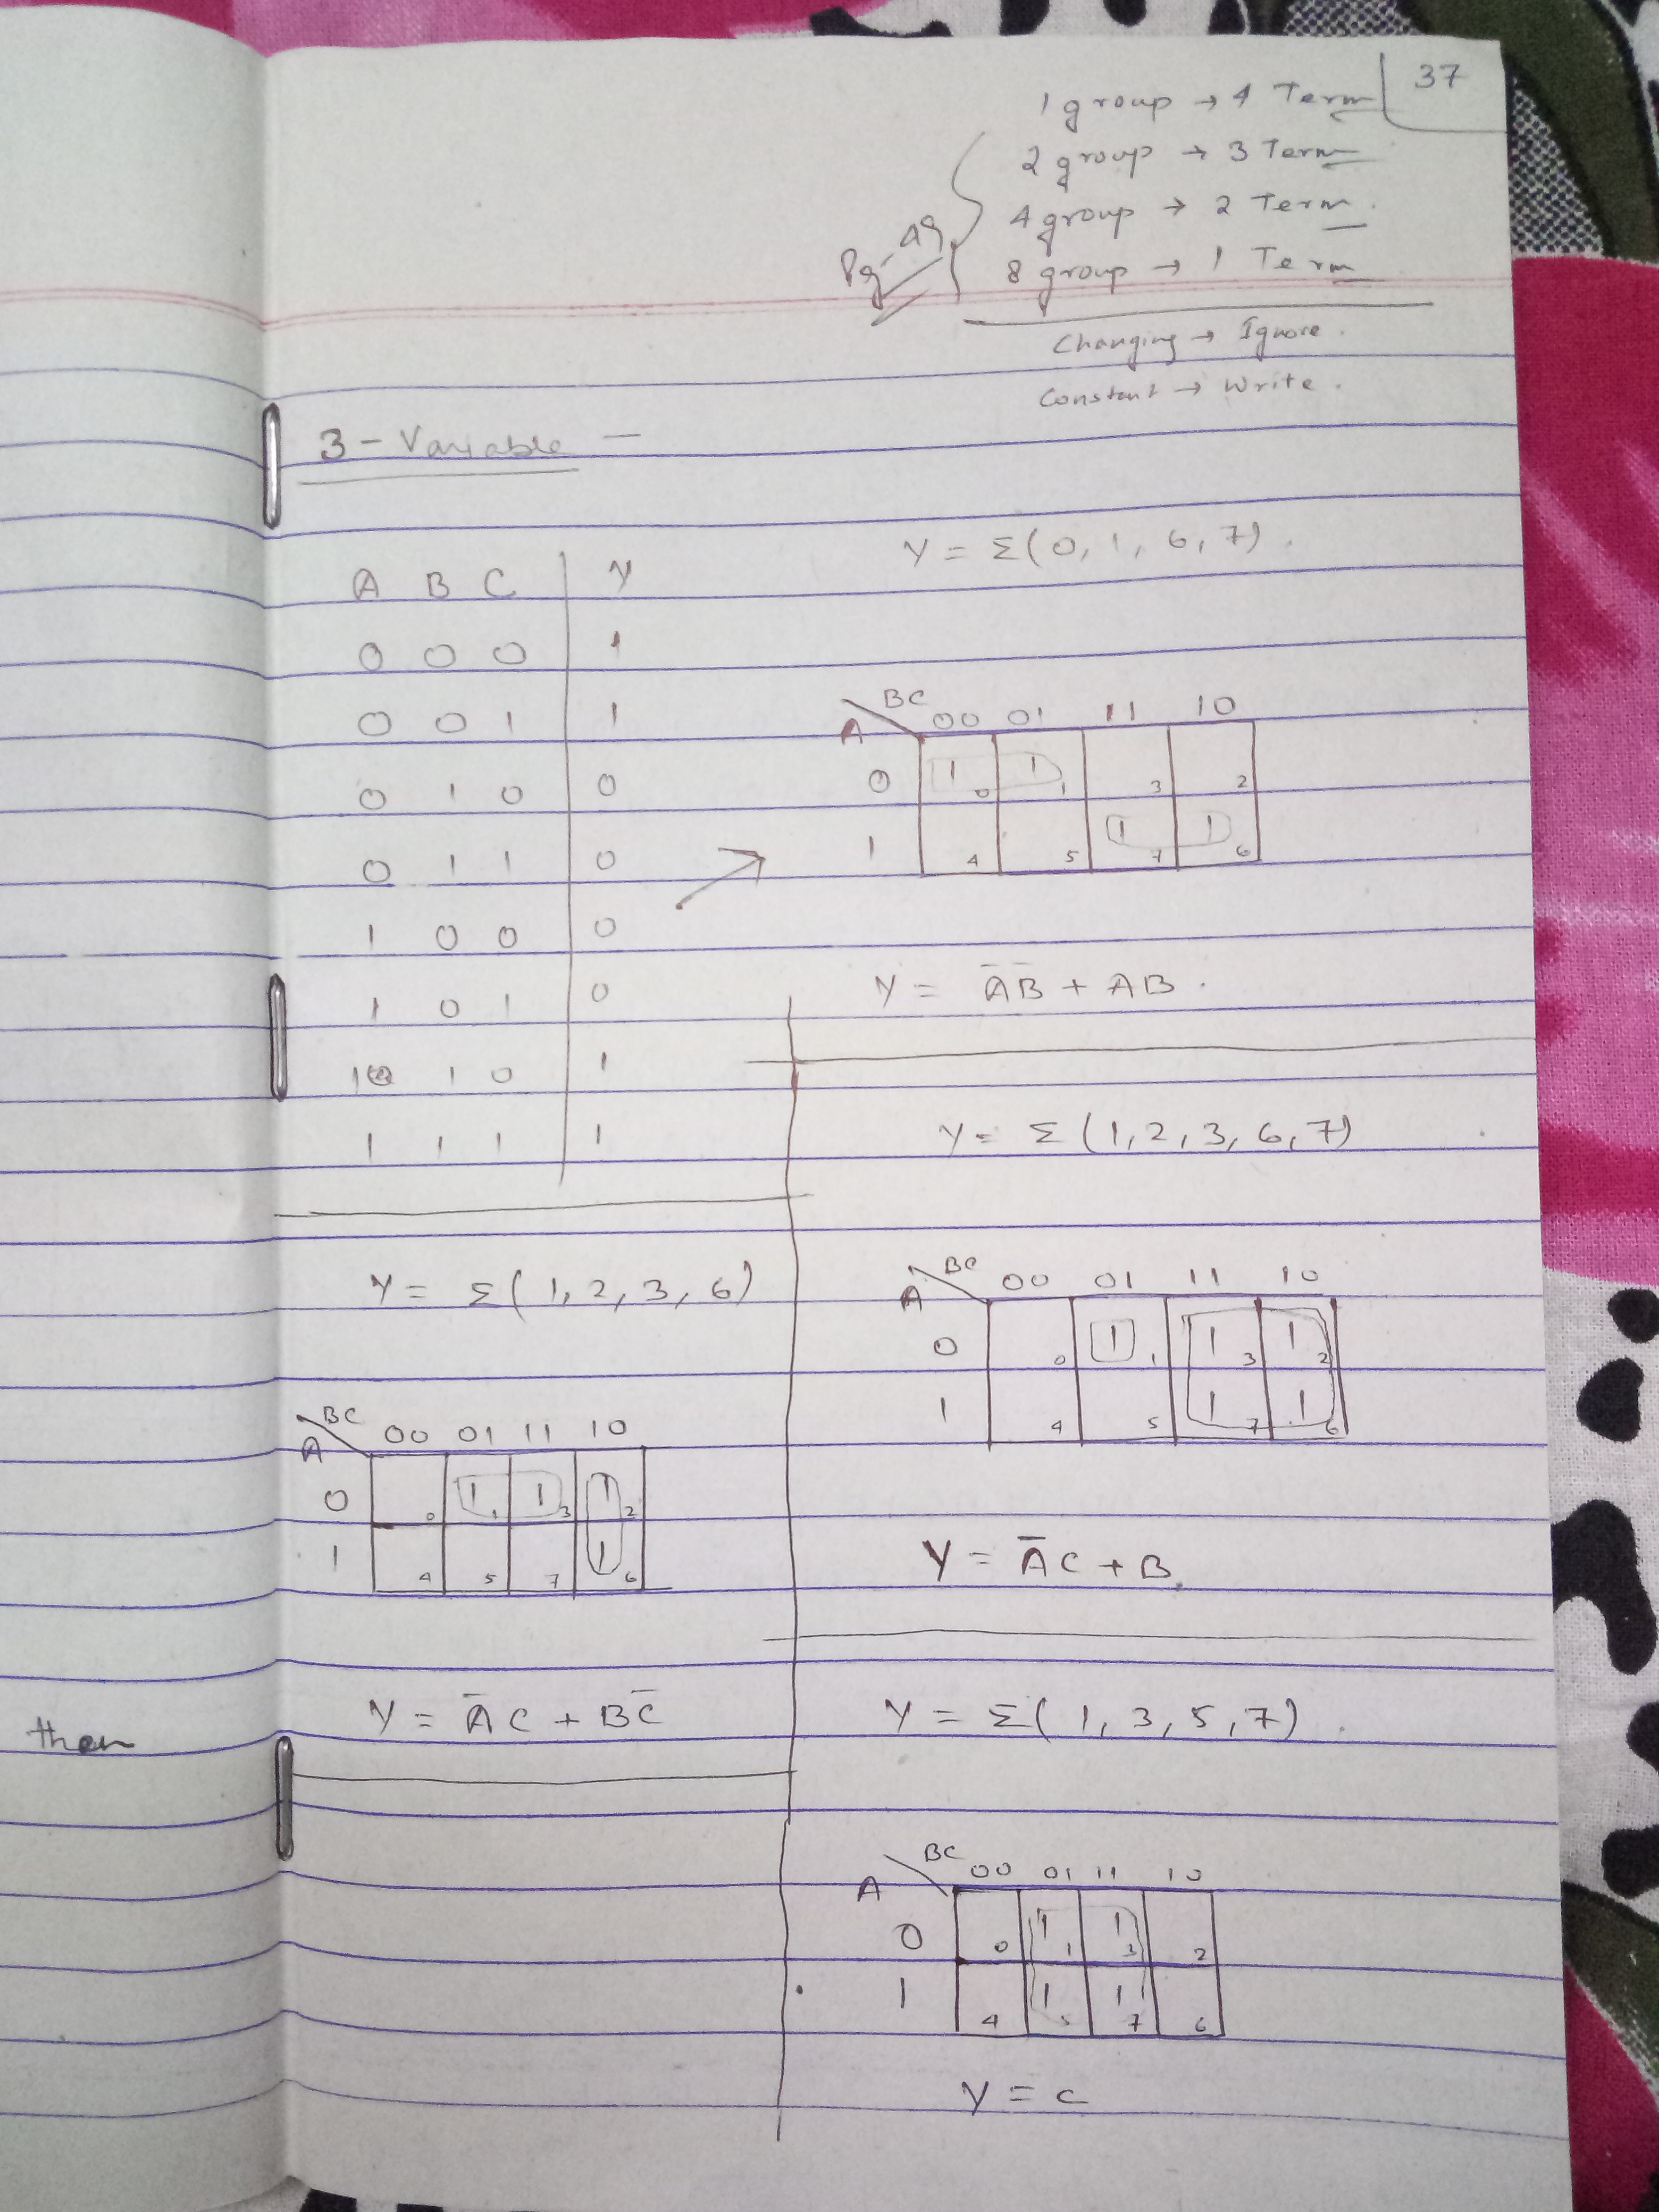 37
1 group → 4 Term
2 group → 3 Term
4 group → 2 Term.
8 group → 1 Term
Pg-49
Changing → Ignore.
Constant → Write.
3 - Variable -
A B C Y
0 0 0 1
0 0 1 1
0 1 0 0
0 1 1 0
1 0 0 0
1 0 1 0
1 1 0 1
1 1 1 1
Y = Σ(0, 1, 6, 7).
BC
A 00 01 11 10
0 1 0 1 1 3 2
1 4 5 1 7 1 6
Y = A̅B̅ + AB.
Y = Σ(1, 2, 3, 6)
BC
A 00 01 11 10
0 0 1 1 1 3 1 2
1 4 5 7 1 6
Y = A̅C + BC̅
Y = Σ(1, 2, 3, 6, 7)
BC
A 00 01 11 10
0 0 1 1 1 3 1 2
1 4 5 1 7 1 6
Y = A̅C + B
Y = Σ(1, 3, 5, 7).
BC
A 00 01 11 10
0 0 1 1 1 3 2
1 4 1 5 1 7 6
Y = C
then